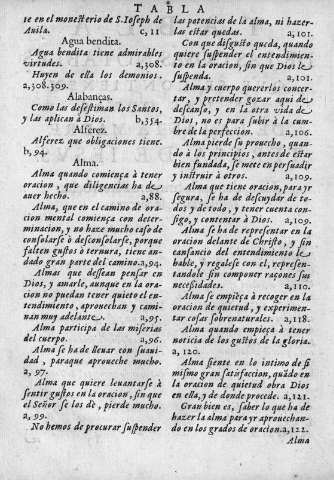 TABLA
te en el monesterio de S. Ioseph de
Auila. c, 11
Agua bendita.
Agua bendita tiene admirables
virtudes. a, 308.
Huyen de ella los demonios.
a, 308. 309.
Alabanças.
Como las desestiman los Santos,
y las aplican à Dios. b, 354.
Alferez.
Alferez que obligaciones tiene.
b, 94.
Alma.
Alma quando comiença à tener
oracion, que diligencias ha de
auer hecho. a, 88.
Alma, que en el camino de ora-
cion mental comiença con deter-
minacion, y no haze mucho caso de
consolarse ò desconsolarse, porque
falten gustos ò ternura, tiene an-
dado gran parte del camino. a, 94.
Almas que dessean pensar en
Dios, y amarle, aunque en la oracion
no puedan tener quieto el en-
tendimiento, aprouechan y cami-
nan muy adelante. a, 95.
Alma participa de las miserias
del cuerpo. a, 96.
Alma se ha de lleuar con suaui-
dad, paraque aproueche mucho.
a, 97.
Alma que quiere leuantarse à
sentir gustos en la oracion, sin que
el Señor se los dè, pierde mucho.
a, 99.
No hemos de procurar suspender
las potencias de la alma, ni hazer-
las estar quedas. a, 101.
Con que disgusto queda, quando
quiere suspender el entendimien-
to en la oracion, sin que Dios le
suspenda. a, 101.
Alma y cuerpo quererlos concer-
tar, y pretender gozar aqui de
descanso, y en la otra vida de
Dios, no es para subir à la cum-
bre de la perfeccion. a, 106.
Alma pierde su prouecho, quan-
do à los principios, antes de estar
bien fundada, se mete en persuadir
y instruir à otros. a, 109.
Alma que tiene oracion, para yr
segura, se ha de descuydar de to-
dos y de todo, y tener cuenta con-
sigo, y contentar à Dios. a, 109.
Alma se ha de representar en la
oracion delante de Christo, y sin
cansancio del entendimiento le
hable, y regalese con el, represen-
tandole sin componer raçones sus
necessidades. a, 110.
Alma se empieça à recoger en la
oracion de quietud, y experimen-
tar cosas sobrenaturales. a, 118.
Alma quando empieça à tener
noticia de los gustos de la gloria.
a, 120.
Alma siente en lo intimo de si
mismo gran satisfacion, quãdo en
la oracion de quietud obra Dios
en ella, y de donde procede. a, 121.
Gran bien es, saber lo que ha de
hazer la alma para yr aprouechan-
do en los grados de oracion. a, 122.
Alma